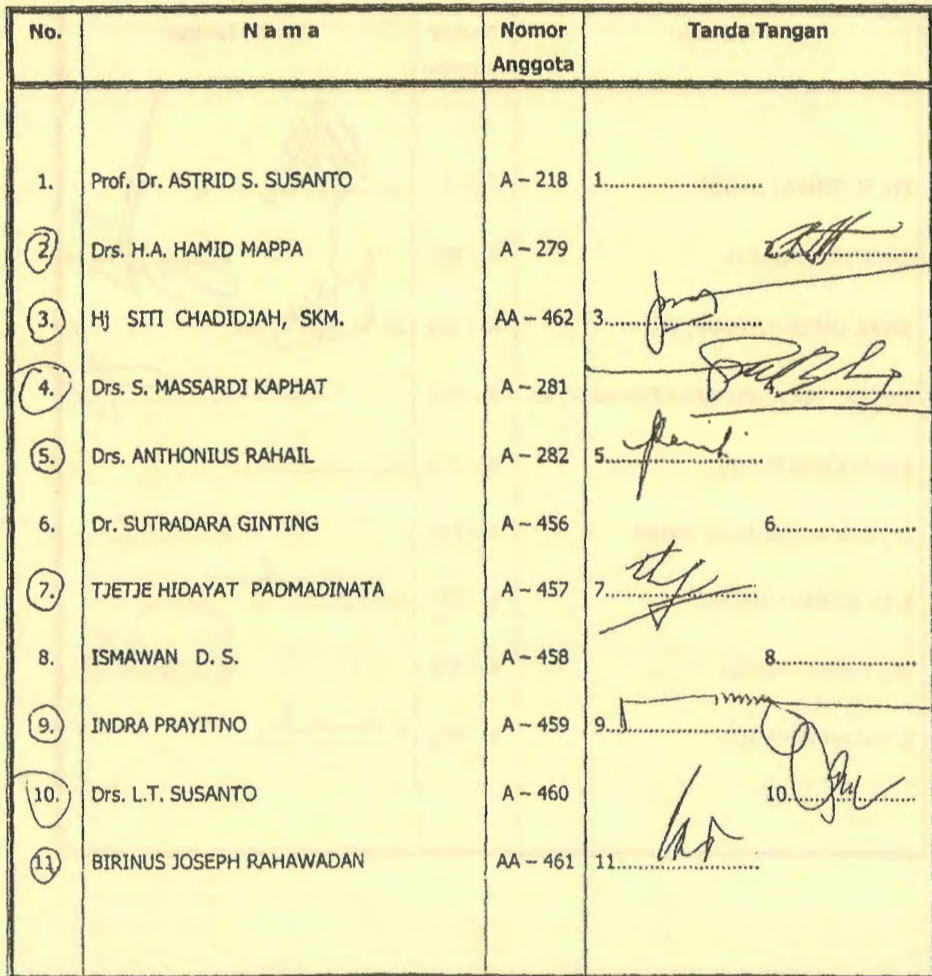 No. N a m a Nomor Anggota Tanda Tangan
1. Prof. Dr. ASTRID S. SUSANTO A – 218 1..........................
2. Drs. H.A. HAMID MAPPA A – 279 2..........................
3. Hj SITI CHADIDJAH, SKM. AA – 462 3..........................
4. Drs. S. MASSARDI KAPHAT A – 281 4..........................
5. Drs. ANTHONIUS RAHAIL A – 282 5..........................
6. Dr. SUTRADARA GINTING A – 456 6..........................
7. TJETJE HIDAYAT PADMADINATA A – 457 7..........................
8. ISMAWAN D. S. A – 458 8..........................
9. INDRA PRAYITNO A – 459 9..........................
10. Drs. L.T. SUSANTO A – 460 10..........................
11. BIRINUS JOSEPH RAHAWADAN AA – 461 11..........................